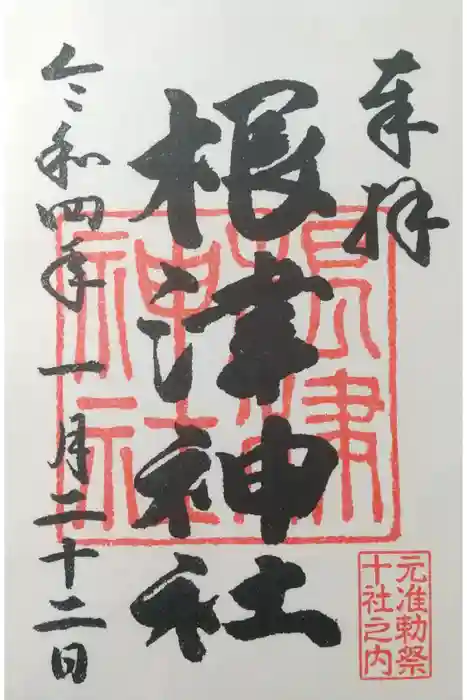 奉拝
根津神社
令和四年一月二十二日
根津神社
元准勅祭
十社之内